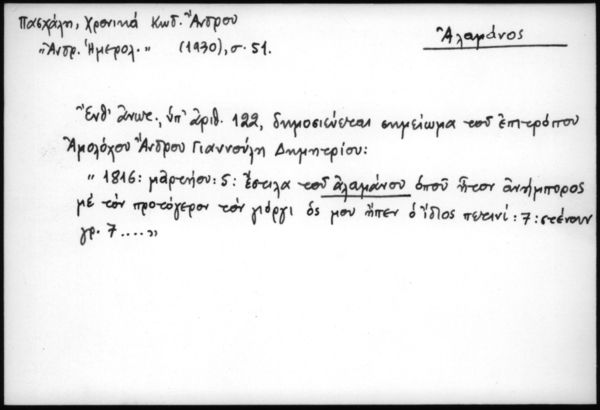 Πασχάλη, Χρονικά Κωδ. Ἄνδρου
"Ἀνδρ. Ἡμερολ." (1930), σ. 51.
Ἀλαμάνος
Ἔνθ' ἀνωτ., ὑπ' ἀριθ. 122, δημοσιεύεται σημείωμα τοῦ ἐπιτρόπου
Ἀμολόχου Ἄνδρου Γιαννούλη Δημητρίου:
" 1816: μαρτήου: 5: ἔστιλα τοῦ ἀλαμάνου ὁποῦ ἦτον ἀνήμπορος
μέ τόν προτόγερον τόν γιόργι ὁς μου ἦπεν ὁ ἴδιος πετινί: 7: στένουν
γρ. 7 .... "